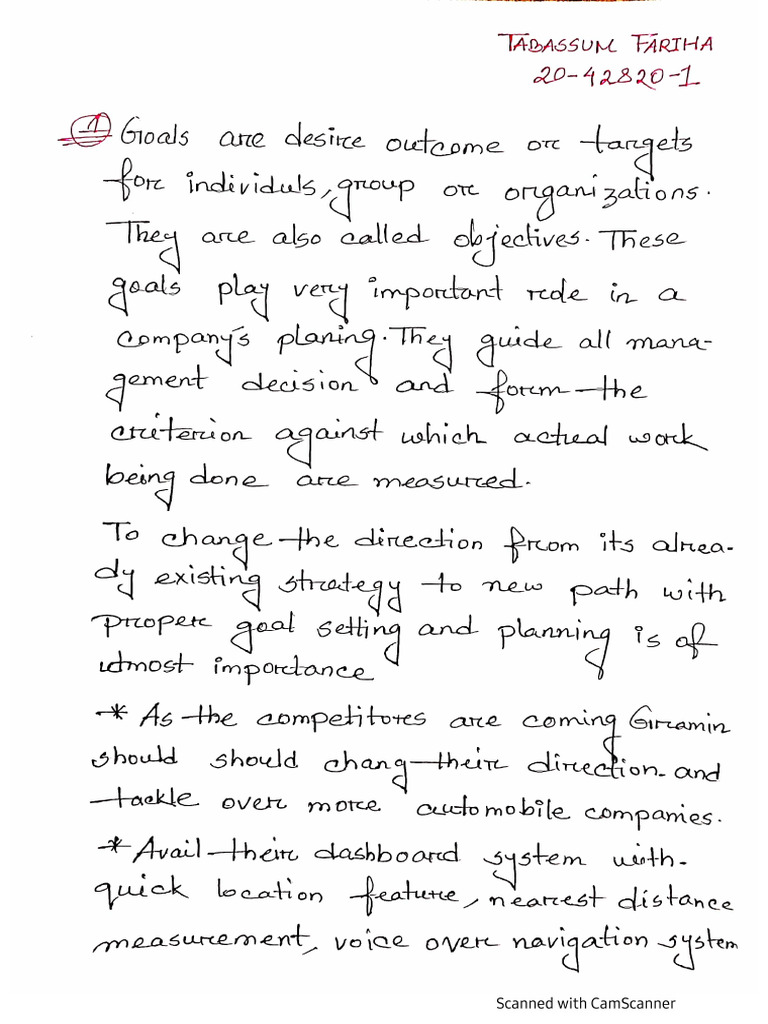 TABASSUM FARIHA
20-42820-1
1 Goals are desire outcome or targets
for individuls, group or organizations.
They are also called objectives. These
goals play very important role in a
company's planing. They guide all mana-
gement decision and form the
criterion against which actual work
being done are measured.
To change the direction from its alrea-
dy existing strategy to new path with
proper goal setting and planning is of
utmost importance
* As the competitores are coming Giramin
should should chang their direction and
tackle over more automobile companies.
* Avail their dashboard system with
quick location feature, nearest distance
measurement, voice over navigation system
Scanned with CamScanner